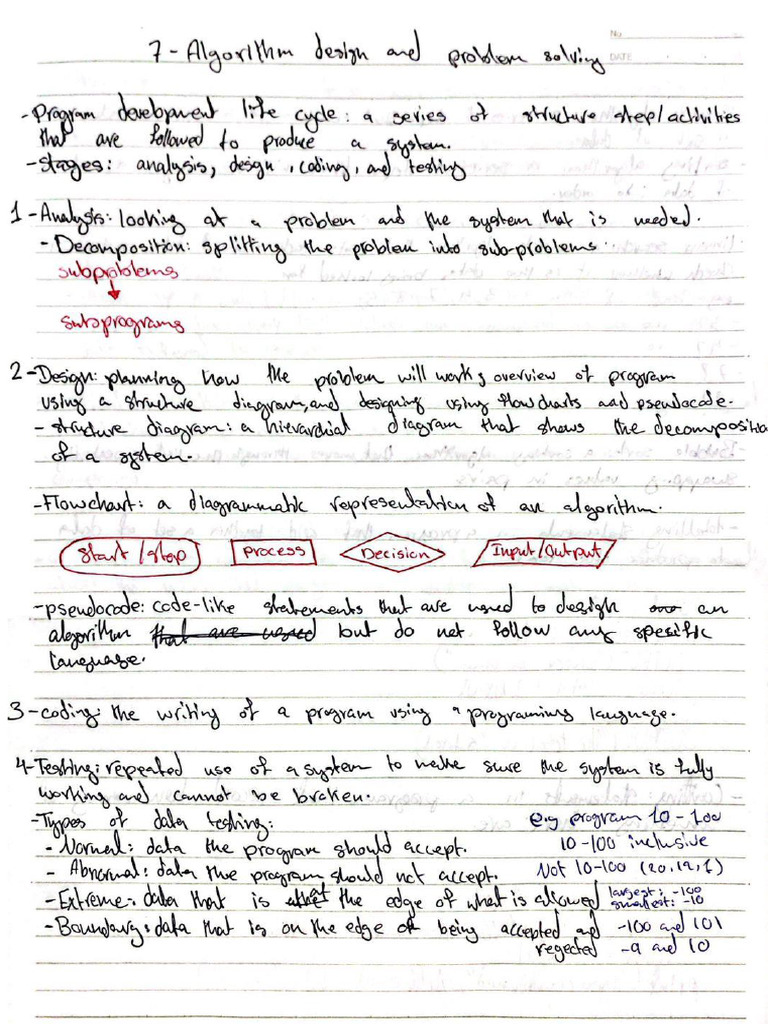 No
DATE
7 - Algorithm design and problem solving
- Program development life cycle: a series of structure step/activities
that are followed to produce a system.
- Stages: analysis, design, coding, and testing
1 - Analysis: looking at a problem and the system that is needed.
- Decomposition: splitting the problem into sub-problems.
subproblems
subprograms
2 - Design: planning how the problem will work, overview of program
using a structure diagram, and designing using flowcharts and pseudocode.
- structure diagram: a hierarchial diagram that shows the decompositio
of a system.
- Flowchart: a diagrammatic representation of an algorithm.
Start/stop PROCESS Decision Input/Output
- pseudocode: code-like statements that are used to design an
algorithm that are used but do not follow any spesific
language.
3 - coding: the writing of a program using a programing language.
4 - Testing: repeated use of a system to make sure the system is fully
working and cannot be broken.
- Types of data testing: e.g program 10 - 100
- Normal: data the program should accept. 10-100 inclusive
- Abnormal: data the program should not accept. Not 10-100
- Extreme: data that is at the edge of what is allowed largest: -100
smallest: -10
- Boundary: data that is on the edge of being accepted and -100 and 101
regected -9 and 10